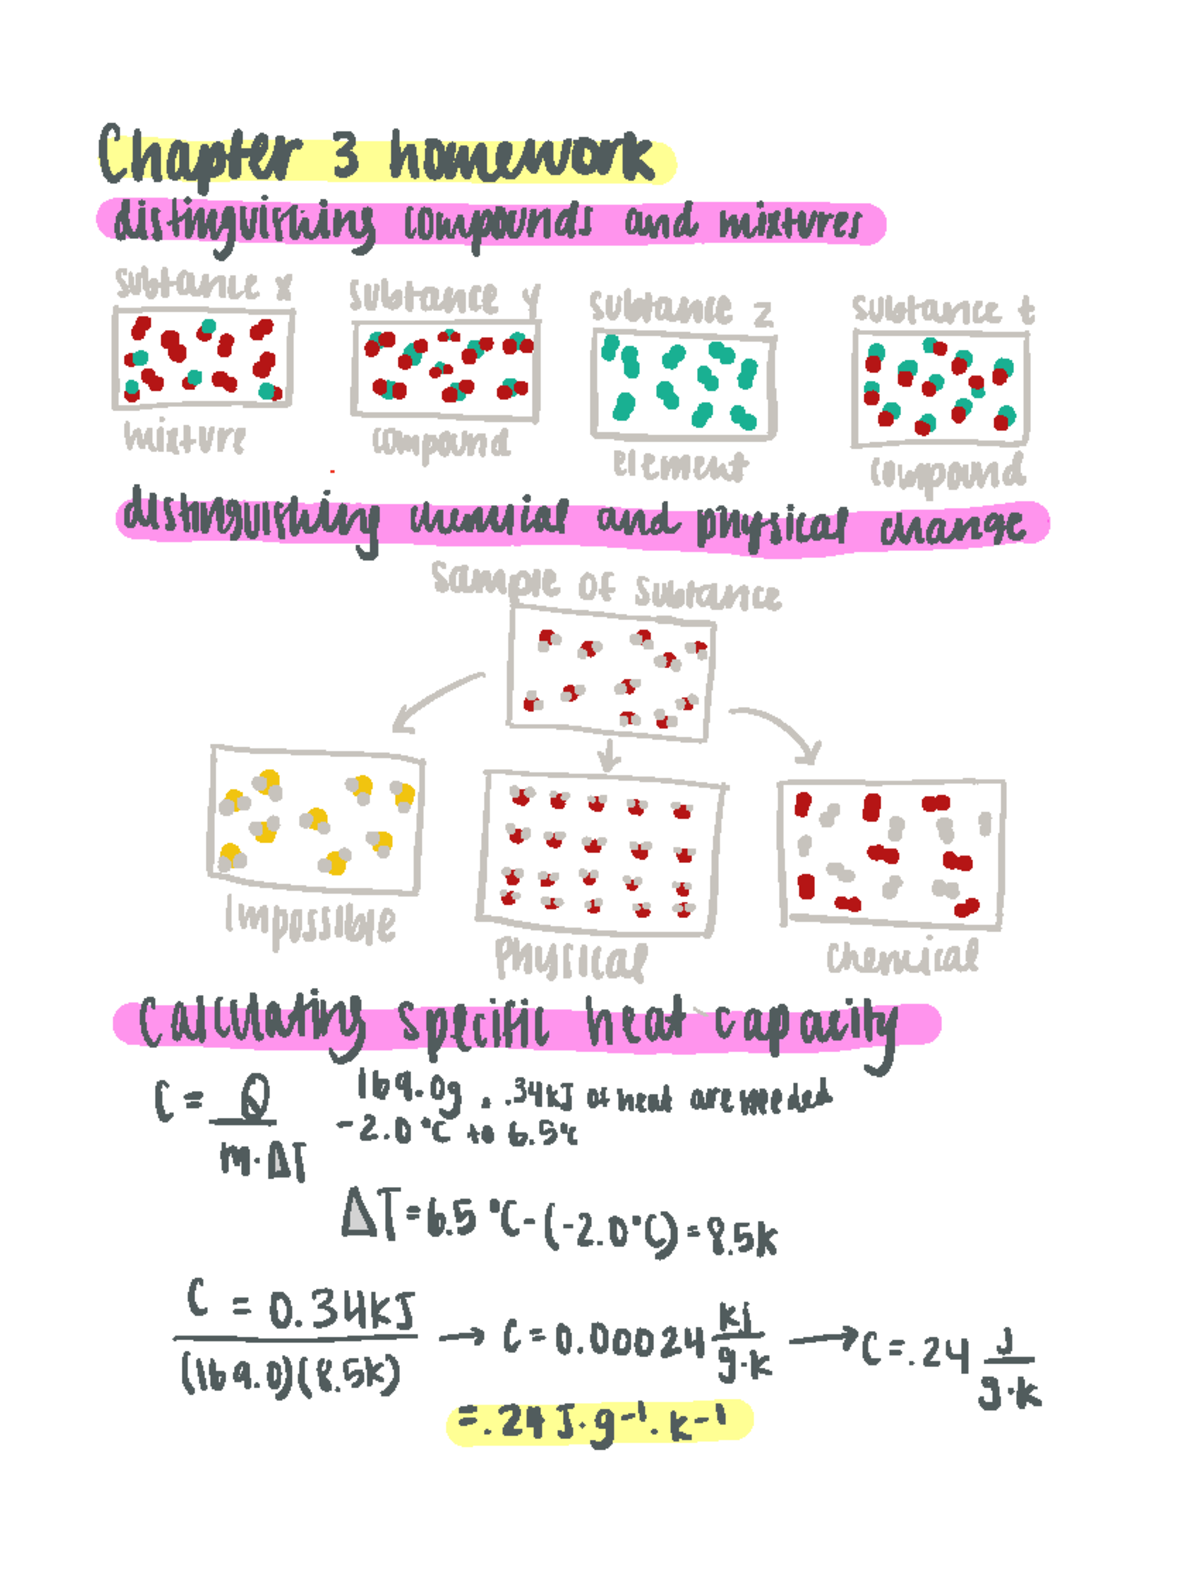 Chapter 3 homework
distinguishing compounds and mixtures
subtance x subtance y subtance z subtance t
mixture compound element compound
distinguishing chemical and physical change
Sample of Subtance
Impossible Physical Chemical
Calculating specific heat capacity
C = Q / m·ΔT
169.0g . .34kJ of heat are needed
-2.0°C to 6.5°C
ΔT = 6.5 °C - (-2.0°C) = 8.5k
C = 0.34kJ / (169.0)(8.5k) → C = 0.00024 kj / g·k → C = .24 J / g·k
= .24 J·g⁻¹·k⁻¹